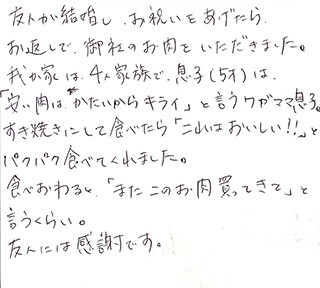 友人が結婚し、お祝いをあげたら
お返しで、御社のお肉をいただきました。
我が家は、4人家族で、息子(5才)は、
「安い肉は、かたいからキライ」と言うワガママ息子。
すき焼きにして食べたら「これはおいしい!!」と
パクパク食べてくれました。
食べおわると、「またこのお肉買ってきて」と
言うくらい。
友人には感謝です。